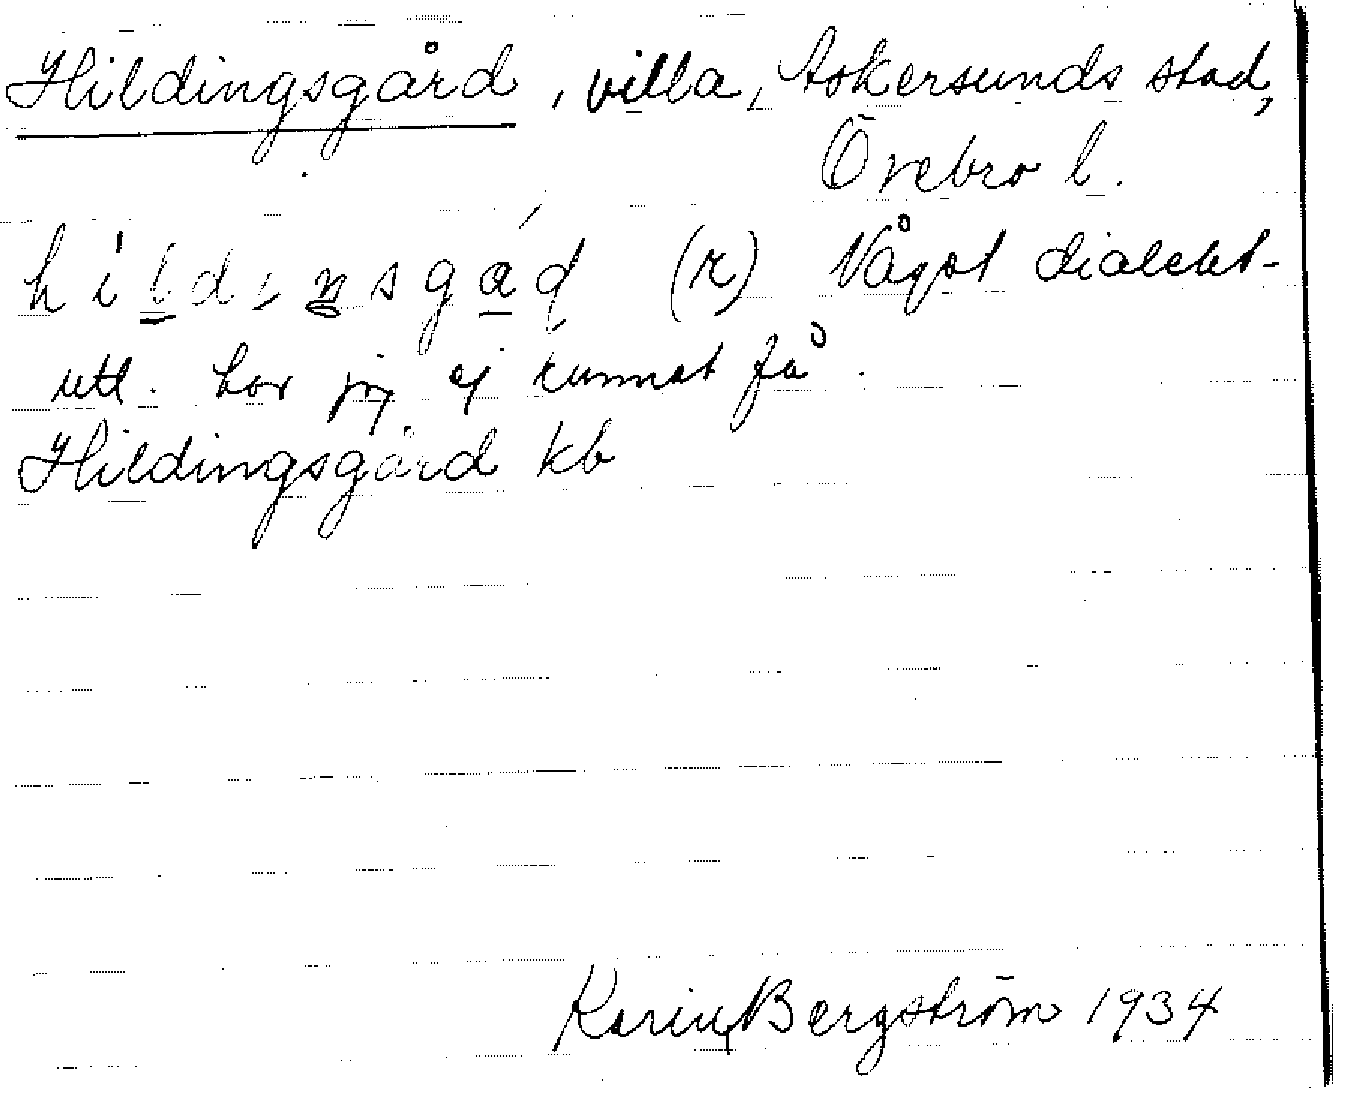 Hildingsgård, villa, Askersunds stad,
Örebro l.
hildıŋsgáɖ (r) Något dialekt-
utt. har jag ej kunnat få.
Hildingsgård kb
Karin Bergström 1934